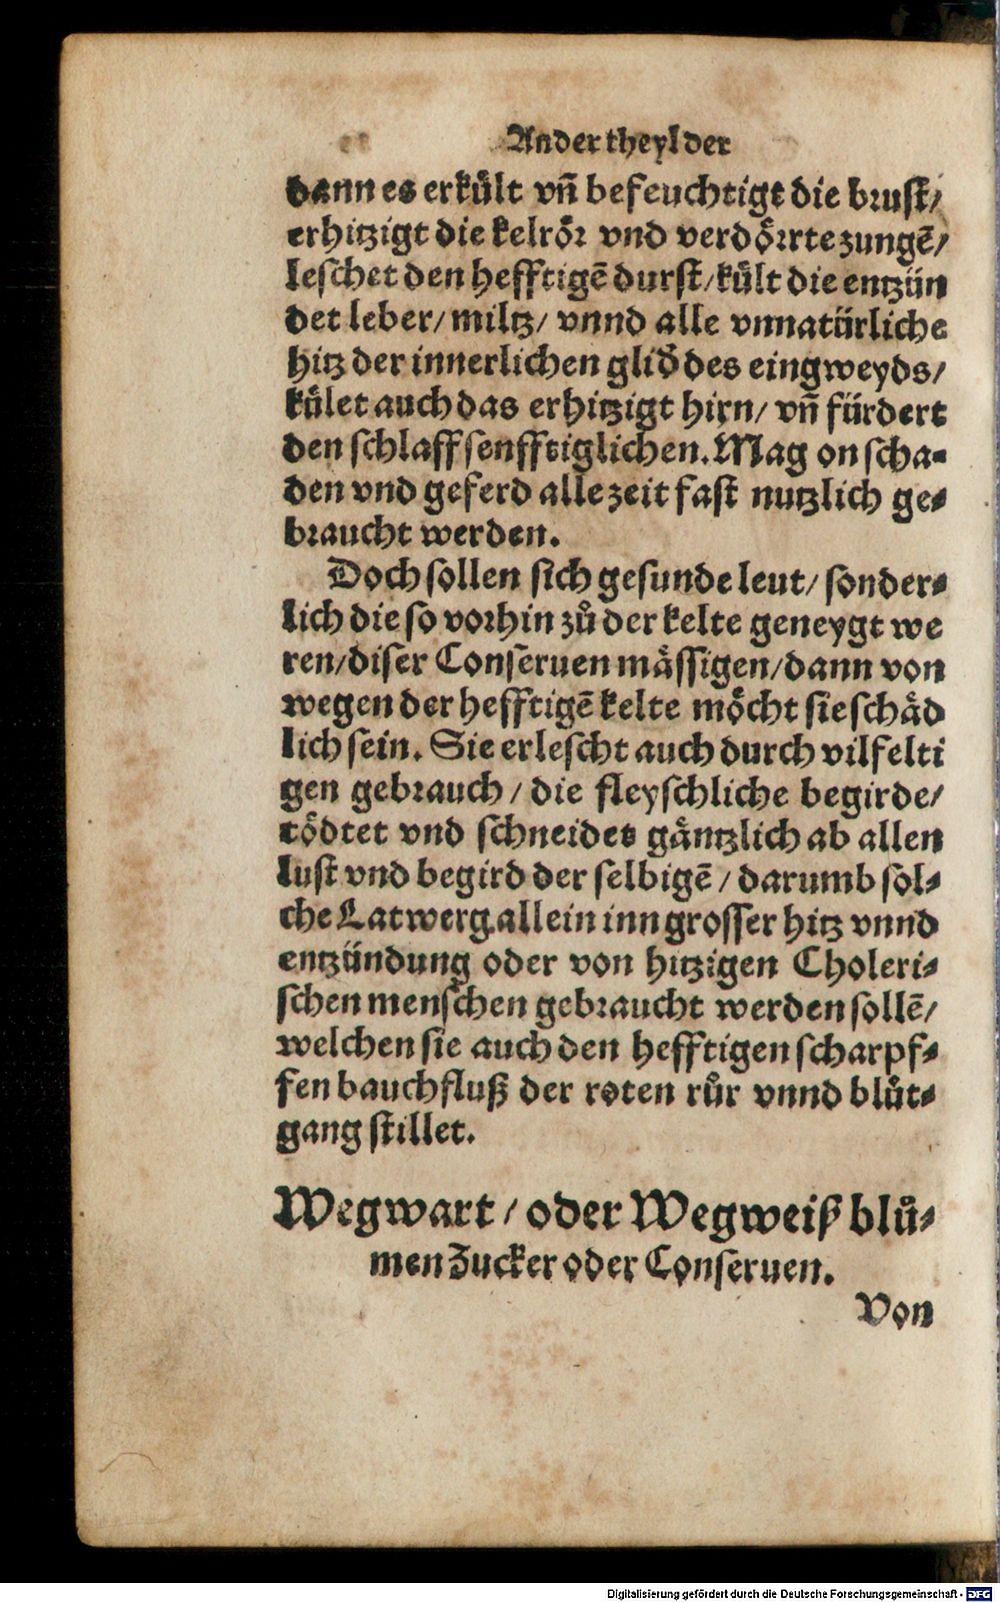 Ander theyl der
dann es erkůlt vn̄ befeuchtigt die brust/
erhitzigt die kelrȯ̈r vnd verdȯ̈rrte zungē/
leschet den hefftigē durst/ kůlt die entzün
det leber/ miltz/ vnnd alle vnnatürliche
hitz der innerlichen glid̄ des eingweyds/
kůlet auch das erhitzigt hirn/ vn̄ fürdert
den schlaff senfftiglichen. Mag on scha-
den vnd geferd alle zeit fast nutzlich ge-
braucht werden.
Doch sollen sich gesunde leut/ sonder-
lich die so vorhin zů der kelte geneygt we
ren/ diser Conseruen mässigen/ dann von
wegen der hefftigē kelte möcht sie schäd
lich sein. Sie erlescht auch durch vilfelti
gen gebrauch / die fleyschliche begirde/
tödtet vnd schneidet gäntzlich ab allen
lust vnd begird der selbigē / darumb sol-
che Latwerg allein inn grosser hitz vnnd
entzündung oder von hitzigen Choleri-
schen menschen gebraucht werden sollē/
welchen sie auch den hefftigen scharpf-
fen bauchfluß der roten růr vnnd blůt-
gang stillet.
Wegwart / oder Wegweiß blů-
men Zucker oder Conseruen.
Von
Digitalisierung gefördert durch die Deutsche Forschungsgemeinschaft - DFG